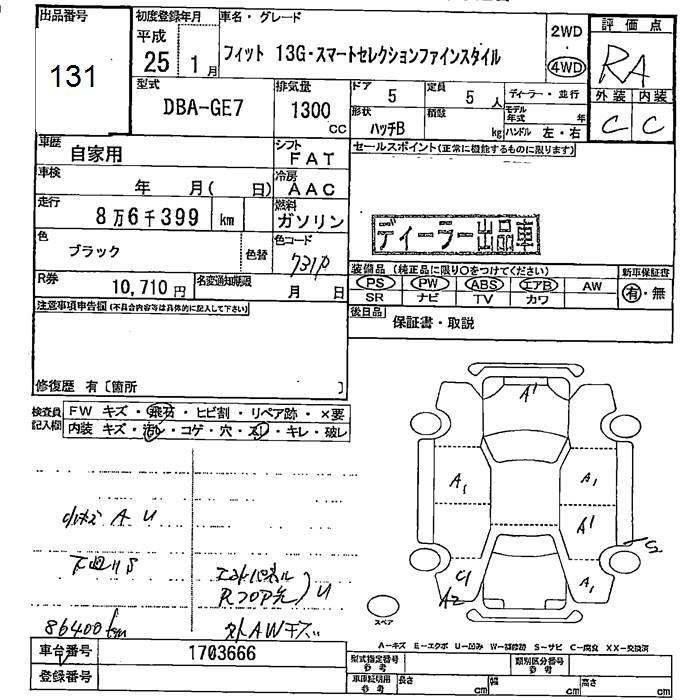 出品番号 初度登録年月 車名・グレード 評価点
131
平成 25 1月 フィット 13G・スマートセレクションファインスタイル 2WD 4WD RA
型式 排気量 ドア 定員 ディーラー・並行 外装 内装
DBA-GE7 1300 CC 5 5人 モデル年式 年 C C
形状 積載 ハッチB kg ハンドル 左・右
車歴 自家用 シフト FAT セールスポイント(正常に機能するものに限ります)
車検 年 月( 日) 冷房 AAC
走行 8万6千399 km 燃料 ガソリン
ディーラー出品車
色 ブラック 色替 色コード 731P
装備品 (純正品に限り○をつけてください) 新車保証書
R券 10,710円 名変通知期限 月 日
PS PW ABS エアB AW 有・無
SR ナビ TV カワ
注意事項申告欄(不具合内容等は具体的に記入して下さい) 後日品 保証書・取説
修復歴 有〔箇所 〕
検査員記入欄 FW キズ・飛石・ヒビ割・リペア跡・×要
内装 キズ・汚レ・コゲ・穴・スレ・キレ・破レ
A1
A1 A1
A1
小キズ A U
下廻りS
エンドパネル
Rフロア先 U
C1 A2 A1 S
86400km 外AWキズ
スペア
A-キズ E-エクボ U-凹み W-補修跡 S-サビ C-腐食 XX-交換済
車台番号 1703666
型式指定番号 参考 類別区分番号 参考
登録番号
車庫証明用 参考 長さ cm 幅 cm 高さ cm